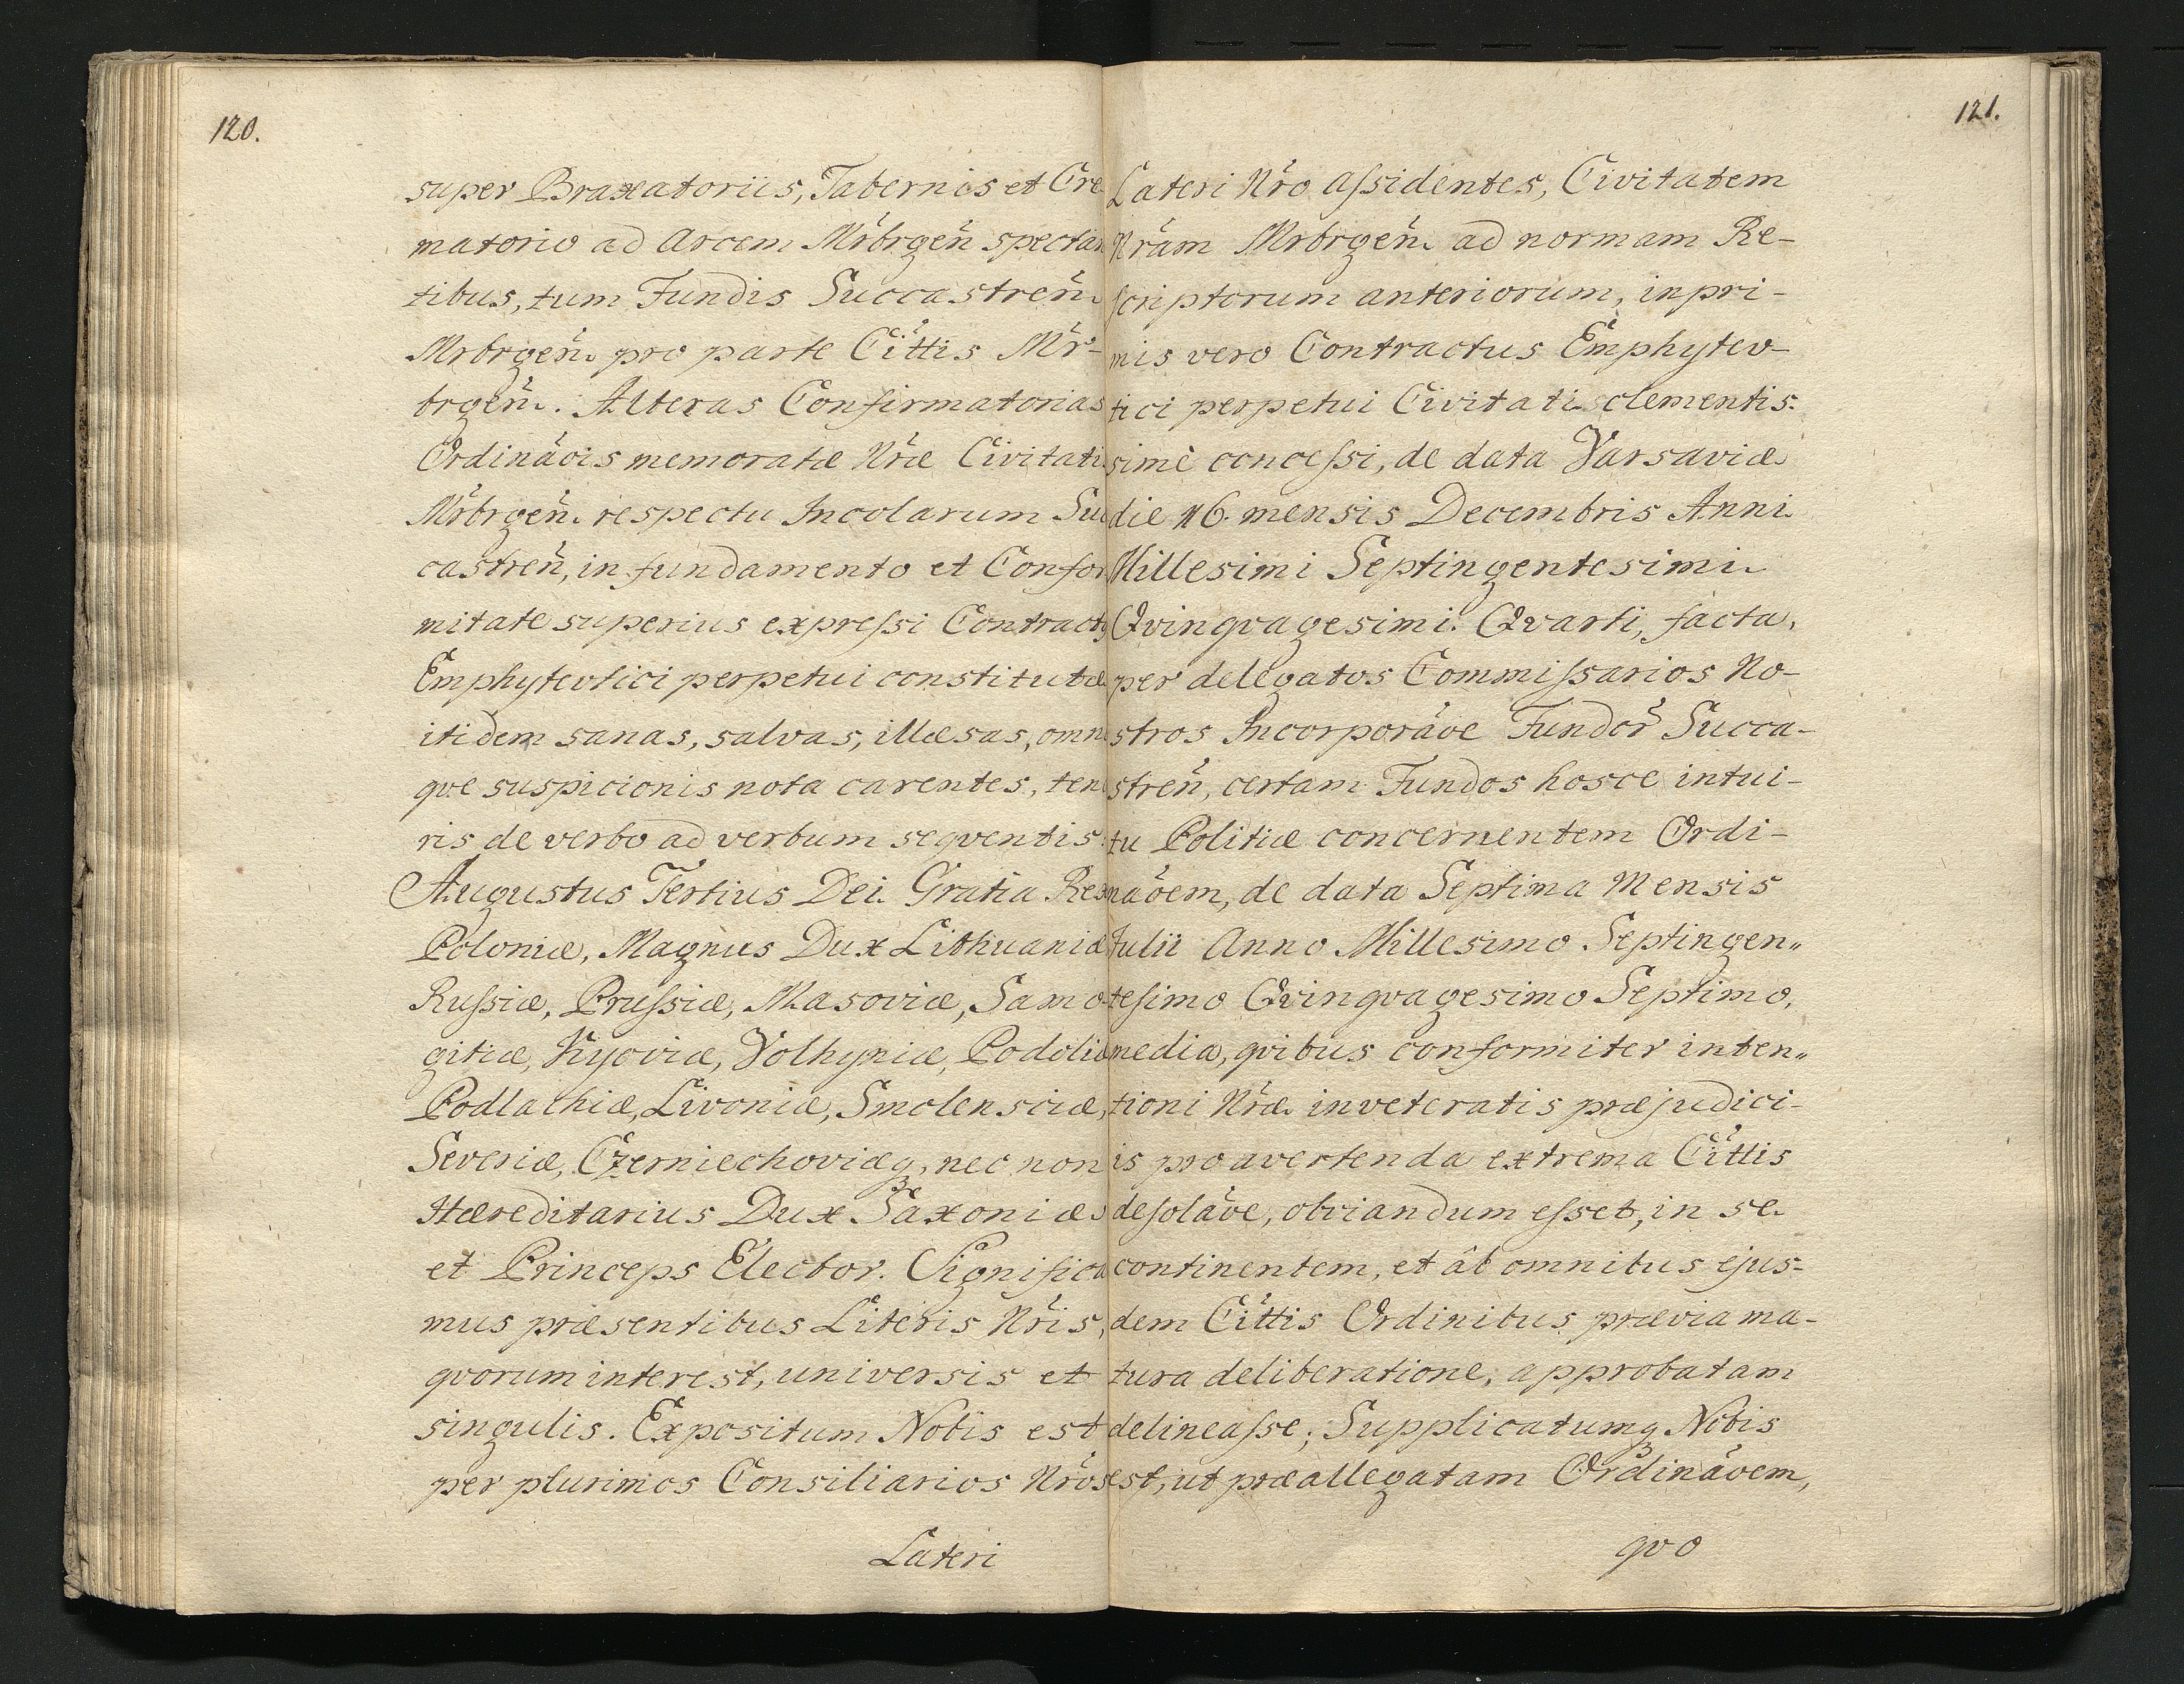 120.
super Braxatoriis, Tabernis et Cre
matorio ad Arcem Mrbrgeñ spectan
tibus, tum Fundis Succastreñ
Mrbrgeñ pro parte Cittis Mr-
brgeñ. Alteras Confirmatorias
Ordinãois memoratæ Nræ Civitatis
Mrbrgeñ respectu Incolarum Suc
castreñ, in fundamento et Confor
mitate superius expreſsi Contractꝰ
Emphytevtici perpetui constitutæ
itidem sanas, salvas, illæsas, omni
qve suspicionis nota carentes, teno
ris de verbo ad verbum seqventis:
Augustus Tertius Dei Gratia Rex
Poloniæ, Magnus Dux Lithuaniæ
Ruſsiæ, Pruſsiæ, Masoviæ, Samo
gitiæ, Kyoviæ, Volhyniæ, Podoliæ
Podlachiæ, Livoniæ, Smolensciæ,
Severiæ, Czerniechoviæqꝫ, nec non
Hæreditarius Dux Saxoniæ
et Princeps Elector. Significa
mus præsentibus Literis Nris,
qvorum interest, universis et
singulis. Expositum Nobis est
per plurimos Consiliarios Nros
Lateri
121.
Lateri Nro aſsidentes, Civitatem
Nram Mrbrgeñ ad normam Re-
scriptorum anteriorum, inpri-
mis vero Contractus Emphytev-
tici perpetui Civitati clementis:
simè conceſsi, de data Varsaviæ
die 16. mensis Decembris Anni
Millesimi Septingentesimi
Qvinqvagesimi Qvarti, facta,
per delegatos Commiſsarios No-
stros Incorporãoe Fundor̃ Succa-
streñ, certam Fundos hosce intui-
tu Politiæ concernentem Ordi-
nãoem, de data Septima Mensis
Julii Anno Millesimo Septingen„
teſimo Qvinqvagesimo Septimo,
media, qvibus conformiter inten„
tioni Nræ inveteratis præjudici-
is pro avertenda extrema Cittis
deſolãoe, obviandum eſset, in se
continentem, et âb omnibus ejus-
dem Cittis Ordinibus prævia ma-
tura deliberatione, approbatam
delineaſse; Supplicatumqꝫ Nobis
est, ut præallegatam Ordinãoem,
qvo